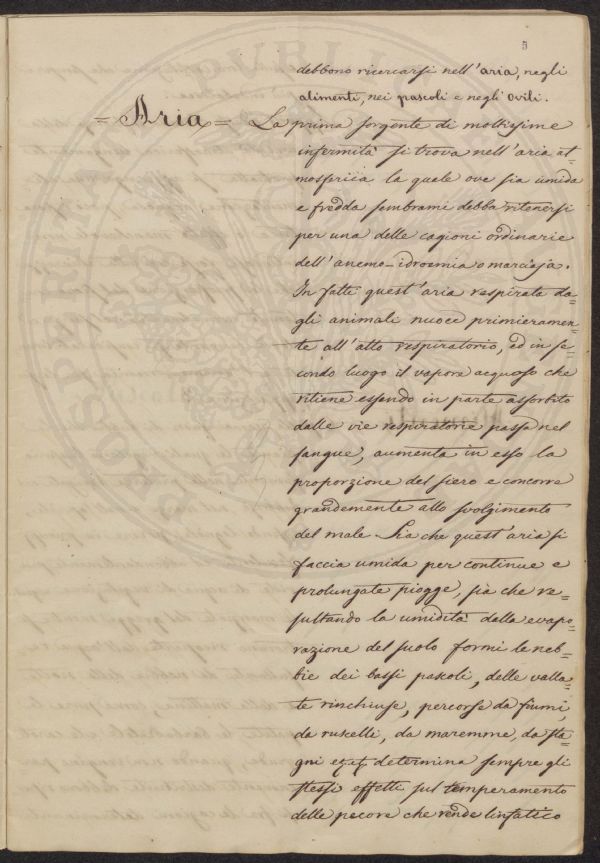 5
debbono ricercarsi nell'aria, negli
alimenti, nei pascoli e negli ovili.
= Aria = La prima sorgente di moltissime
infermità si trova nell'aria at=
mosferica la quale ove sia umida
e fredda, sembrami debba ritenersi
per una delle cagioni ordinarie
dell'anemo-idroemia o marciaja.
In fatti quest'aria respirata da=
gli animali nuoce primieramen=
te all'atto respiratorio, ed in se=
condo luogo il vapore acquoso che
ritiene essendo in parte assorbito
dalle vie respiratorie passa nel
sangue, aumenta in esso la
proporzione del siero e concorre
grandemente allo svolgimento
del male. Sia che quest'aria si
faccia umida per continue e
prolungate piogge, sia che re=
sultando la umidità dalla evapo=
razione del suolo formi le neb=
bie dei bassi pascoli, delle valla=
te rinchiuse, percorse da fiumi,
da ruscelli, da maremme, da sta=
gni determina sempre gli
stessi effetti sul temperamento
delle pecore che rende linfatico